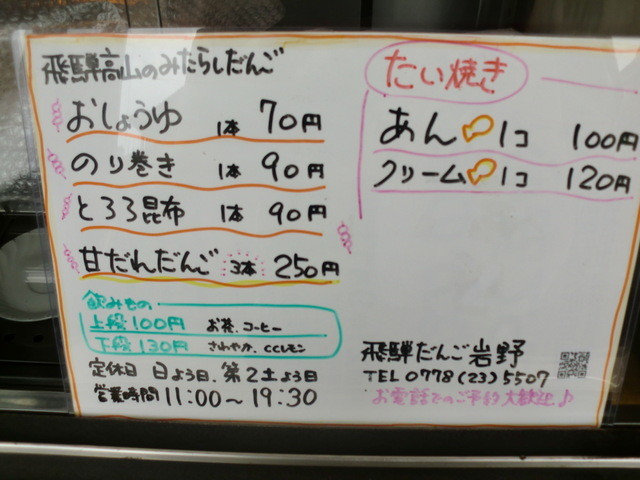 飛騨高山のみたらしだんご
おしょうゆ 1本 70円
のり巻き 1本 90円
とろろ昆布 1本 90円
甘だれだんご 3本 250円
飲みもの
上段100円 お茶、コーヒー
下段130円 さわやか、CCレモン
定休日 日よう日、第2土よう日
営業時間 11:00～19:30
たい焼き
あん 1コ 100円
クリーム 1コ 120円
飛騨だんご 岩野
TEL 0778(23)5507
お電話でのご予約大歓迎♪